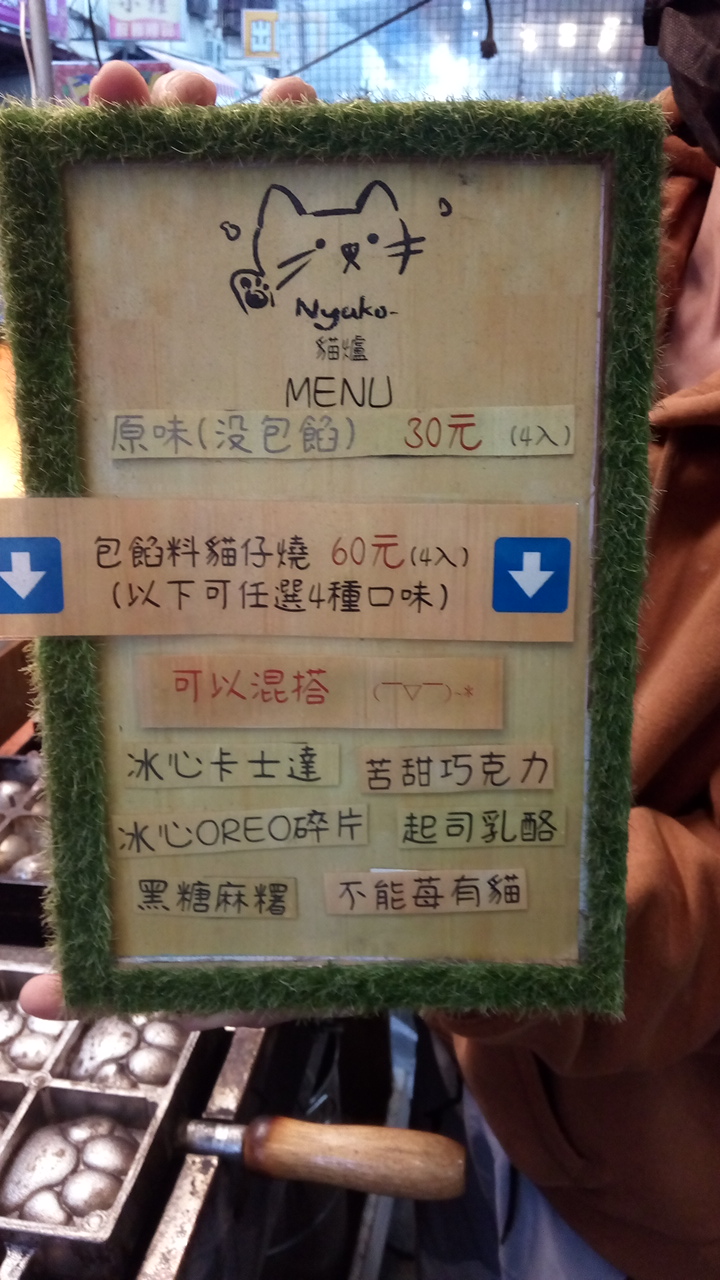 Nyako-
貓爐
MENU
原味(没包餡) 30元 (4入)
包餡料貓仔燒 60元(4入)
(以下可任選4種口味)
可以混搭 (￣▽￣)~*
冰心卡士達 苦甜巧克力
冰心OREO碎片 起司乳酪
黑糖麻糬 不能苺有貓